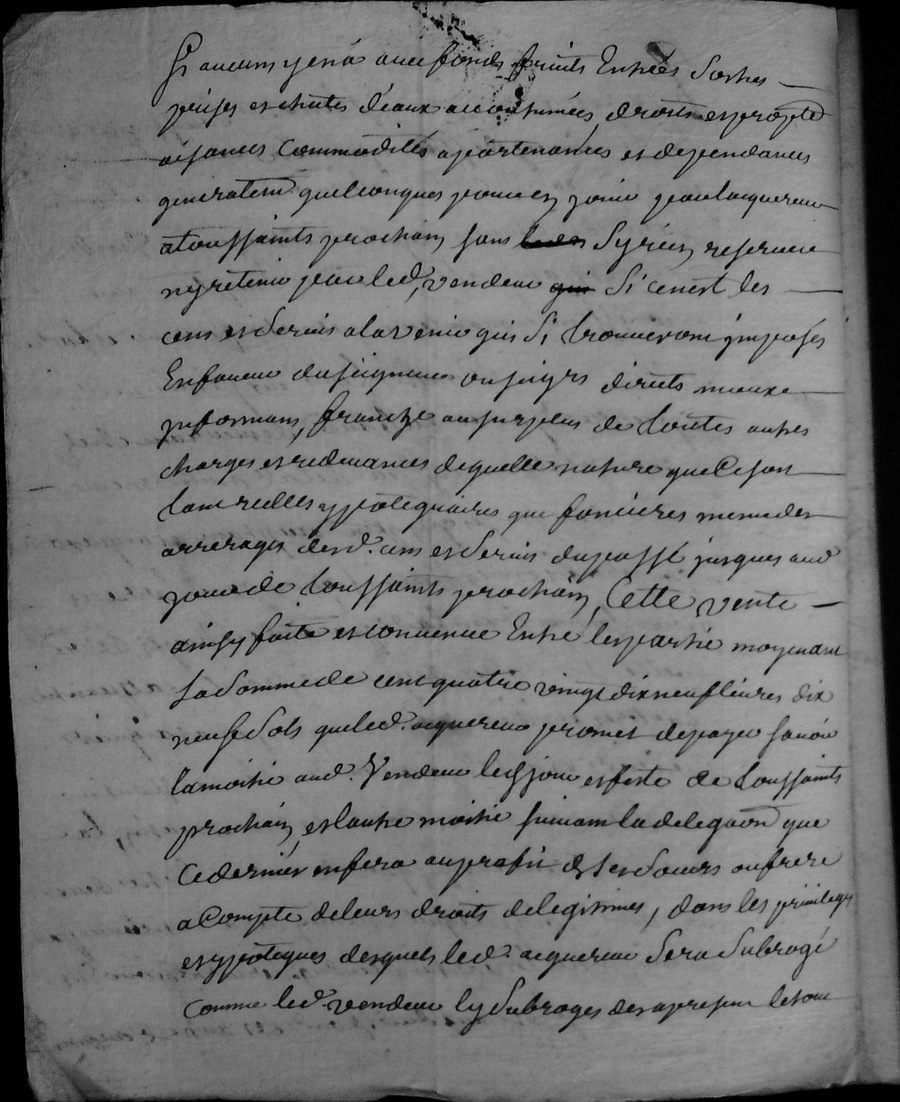 Si aucuns y en a avec fonds fruits Entrées Sorties
prises et chutes d'eaux accoutumées, droits et propted
aisances Commodités apartenances et dependances
generalem quelconques pour en jouir par lacquereur
a toussaints prochain sans Sy rien reserver
ny retenir par led. vendeur qui Si cenest les
cens et Servis a lavenir qui Si trouveront jmposés
En faveur du seigneur ou seigrs directs mieux
jnformans, franche au surplus de toutes autres
charges et redevances de quelle nature quelle soit
tant reelles ypotequaires que foncieres meme des
arrerages desd. cens et servis du passé jusques aud
jour de toussaints prochain, Cette vente
ainsy faite et convenue Entre les partie moyenant
la Somme de cent quatre vingt dix neuf livres dix
neuf Sols que led. acquereur promet de payer savoir
la moitié aud. Vendeur led jour et feste de toussaints
prochain, et lautre moitié suivant la delegaon que
Ce dernier en fera au profit de Ses Soeurs ou frere
a Compte de leurs droits de legitimes, dans les privileges
et ypoteques desquels led. acquereur Sera Subrogé
Comme led. vendeur ly Subroges des apresent le tout